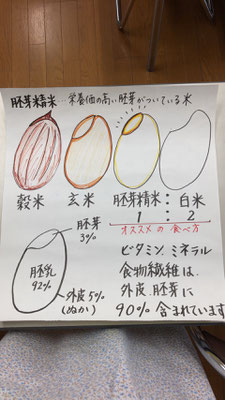 胚芽精米…栄養価の高い胚芽がついている米
穀米 玄米 胚芽精米:白米
1 : 2
オススメの食べ方
胚芽
3%
胚乳
92%
外皮5%
(ぬか)
ビタミン.ミネラル
食物繊維は、
外皮.胚芽に
90%含まれています